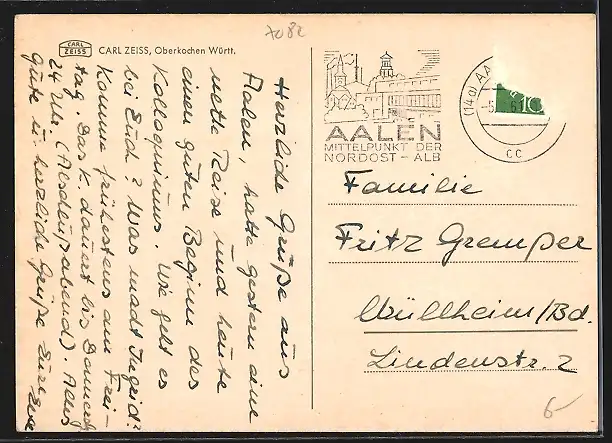 7082
CARL
ZEISS
CARL ZEISS, Oberkochen Württ.
Herzliche Grüße aus
Aalen, hatte gestern eine
nette Reise und heute
einen guten Beginn des
Kolloquiums. Wie geht es
bei Euch? Was macht Ingrid?
Komme frühestens am Frei-
tag. Das K. dauert bis Donnerstag
24 Uhr (Abschiedsabend). Alles
Gute u. herzliche Grüße Eure
AALEN
MITTELPUNKT DER
NORDOST-ALB
(14a) AA
61
cc
10
Familie
Fritz Gremper
Müllheim/Bd.
Lindenstr. 2
6-